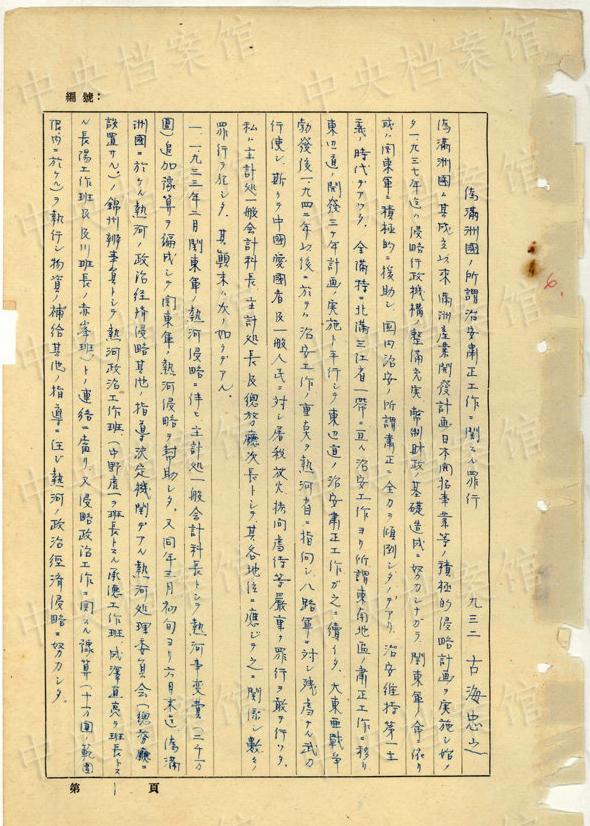 中央档案馆
編號：
偽滿洲國ノ所謂治安肅正工作ニ関スル罪行
九三二 古海忠之
偽滿洲國ハ其成立以来滿洲産業開發計画日本開拓事業等ノ積極的侵略計画ヲ実施シ始メ
タ一九三七年迄ハ侵略行政機構ノ整備充実、幣制財政ノ基礎造成ニ努力シナガラ関東軍ノ命ニ依リ
或ハ関東軍ニ積極的ニ援助シ国内治安ノ所謂肅正ニ全力ヲ傾倒シタノデアリ、治安維持第一主
義ノ時代デアツタ。全滿特ニ北滿三江省一帯ニ亘ル治安工作ヨリ所謂東南地區ノ肅正工作ニ移リ
東辺道ノ開發三ケ年計画ノ実施ト平行シテ東辺道ノ治安肅正工作ガ之ニ續イタ。大東亜戰爭
勃發後一九四二年以後ニ於テハ治安工作ノ重点ヲ熱河省ニ指向シ八路軍ニ対シ残虐ナル武力
行使シ、斯クテ中國愛國者及一般人民ニ対シ屠殺放火拷問虐待等厳重ナ罪行ヲ敢行シタ。
私ハ主計処一般会計科長、主計処長及總務廳次長トシテ其各地位ニ應ジテ之ニ関係シ數々ノ
罪行ヲ犯シタ。其顛末ハ次ノ如クデアル。
一、一九三三年二月関東軍ノ熱河侵略ニ伴ヒ主計処一般会計科長トシテ熱河事変費（二千万
圓）追加豫算ヲ編成シテ関東軍ノ熱河侵略ヲ幇助シタ。又同年三月初旬ヨリ六月末迄偽滿
洲國ニ於ケル熱河ノ政治経済侵略其他ノ指導決定機関デアル熱河処理委員会（總務廳ニ
設置サル）ノ錦州辦事員トシテ熱河政治工作班（中野虎一ヲ班長トスル承徳工作班、成澤直亮ヲ班長トス
ル凌陽工作班及及川班長ノ赤峯班）トノ連絡ニ當リ、又侵略政治工作ニ関スル豫算（十万圓ノ範囲
限内ニ於ケル）ヲ執行シ物資ノ補給其他ノ指導ニ任ジ熱河ノ政治經濟侵略ニ努力シタ。
第1頁
6.